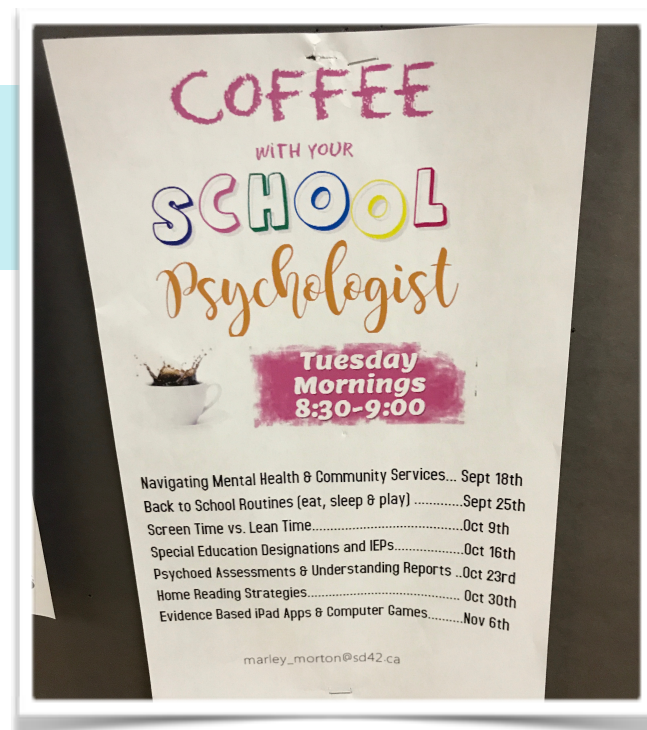 COFFEE
WITH YOUR
SCHOOL
Psychologist
Tuesday
Mornings
8:30-9:00
Navigating Mental Health & Community Services... Sept 18th
Back to School Routines (eat, sleep & play) .............Sept 25th
Screen Time vs. Lean Time.......................................Oct 9th
Special Education Designations and IEPs..................Oct 16th
Psychoed Assessments & Understanding Reports ..Oct 23rd
Home Reading Strategies......................................... Oct 30th
Evidence Based iPad Apps & Computer Games.........Nov 6th
marley_morton@sd42.ca